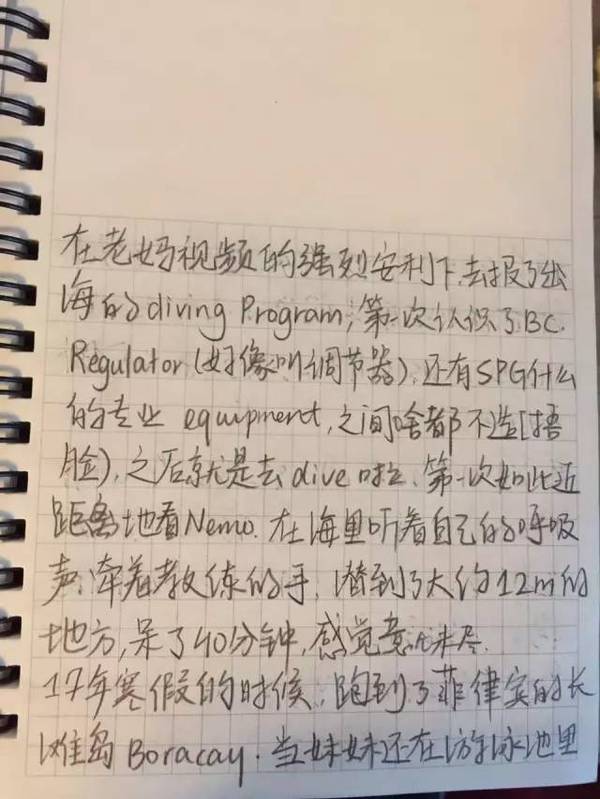 在老妈视频的强烈安利下,去报了出
海的diving Program,第一次认识了BC.
Regulator(好像叫调节器),还有SPG什么
的专业 equipment,之间啥都不造[捂
脸),之后就是去dive啦、第一次如此近
距离地看Nemo.在海里听着自己的呼吸
声,牵着教练的手,潜到了大约12m的
地方,呆了40分钟,感觉意犹未尽.
17年寒假的时候,跑到了菲律宾的长
滩岛Boracay.当妹妹还在游泳池里